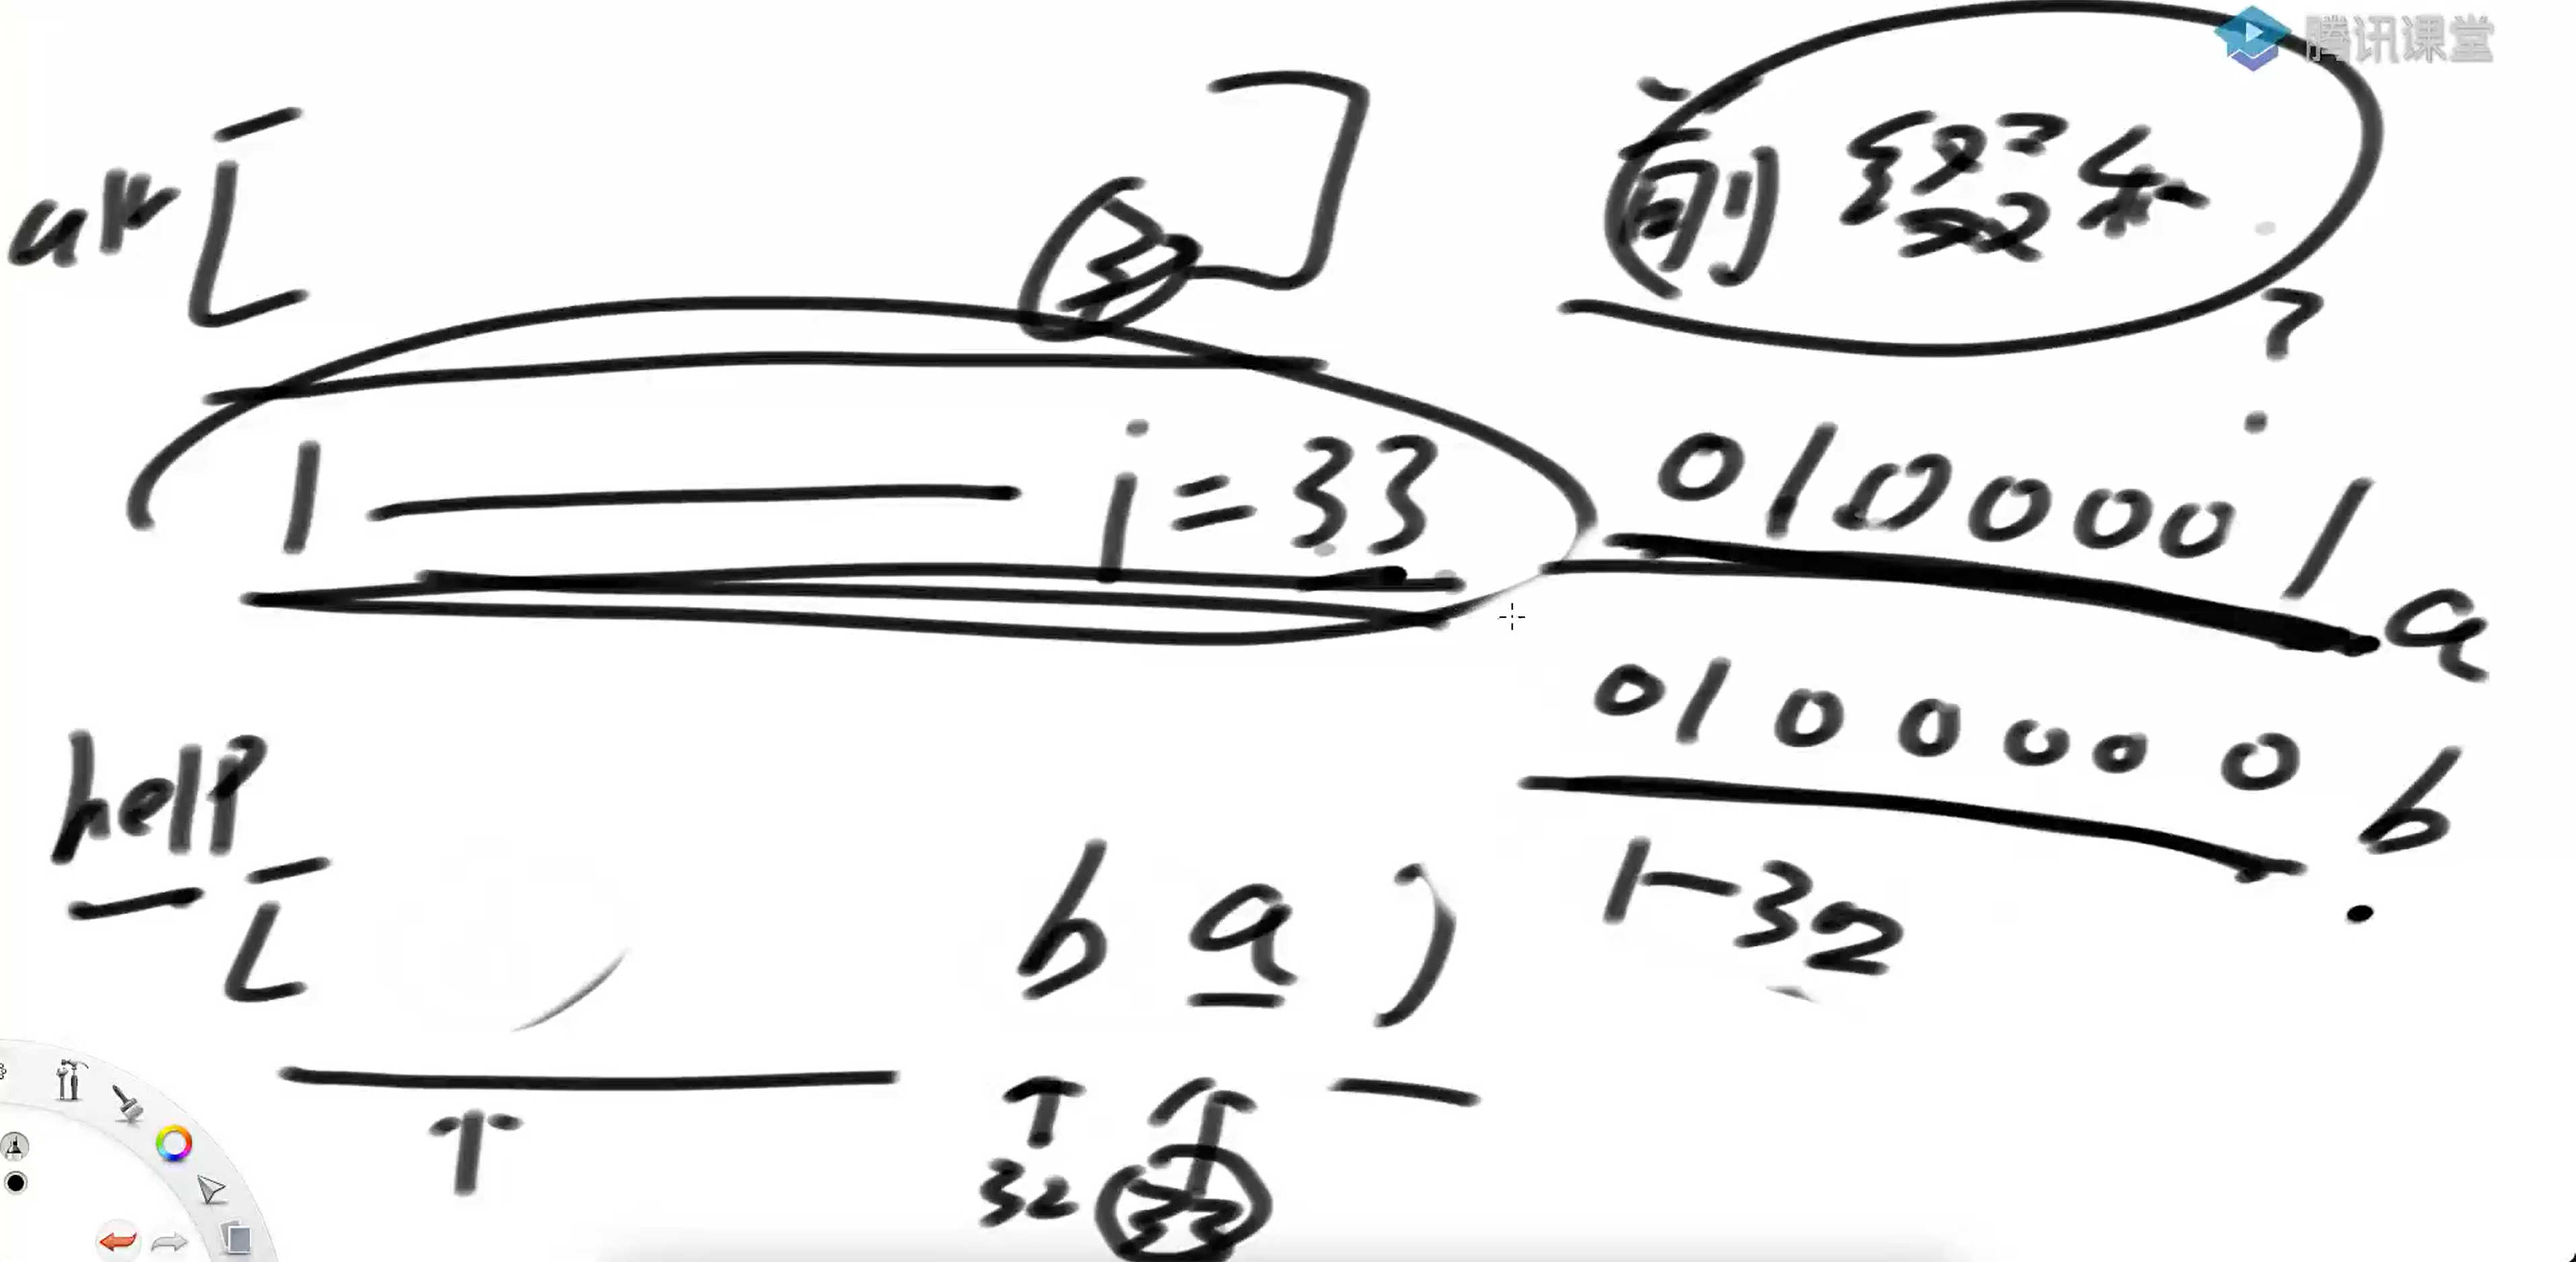 腾讯课堂
arr [ ]
前缀和
?
1 i = 33
0100001 a
0100000 b
help
1-32
[ b a )
32 33